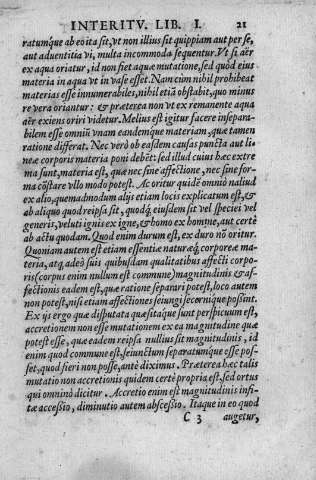 INTERITV. LIB. I. 21
ratumque ab eo ita sit, vt non illius sit quippiam aut per se,
aut aduentitia vi, multa incommoda sequentur. Vt si aër
ex aqua oriatur, id non fiet aquæ mutatione, sed quòd eius
materia in aqua vt in vase esset. Nam cùm nihil prohibeat
materias esse innumerabiles, nihil etiã obstabit, quo minus
re vera oriantur: & præterea non vt ex remanente aqua
aër exiens oriri videtur. Melius est igitur facere insepara-
bilem esse omniũ vnam eandemque materiam, quæ tamen
ratione differat. Nec verò ob easdem causas puncta aut li-
neæ corporis materia poni debēt: sed illud cuius hæc extre
ma sunt, materia est, quæ nec sine affectione, nec sine for-
ma cõstare vllo modo potest. Ac oritur quidē omninò aliud
ex alio, quemadmodum alijs etiam locis explicatum est, &
ab aliquo quod reipsa sit, quodq́ eiusdem sit vel speciei vel
generis, veluti ignis ex igne, & homo ex homine, aut certè
ab actu quodam. Quod enim durum est, ex duro nõ oritur.
Quoniam autem est etiam essentiæ naturæq́ corporeæ ma-
teria, atq́ adeò suis quibusdam qualitatibus affecti corpo-
ris (corpus enim nullum est commune) magnitudinis & af-
fectionis eadem est, quæ ratione separari potest, loco autem
non potest, nisi etiam affectiones seiungi secernique possint.
Ex ijs ergo quæ disputata quæsitaque sunt perspicuum est,
accretionem non esse mutationem ex ea magnitudine quæ
potest esse, quæ eadem reipsa nullius sit magnitudinis, id
enim quod commune est, seiunctum separatumque esse pos-
set, quod fieri non posse, antè diximus. Præterea hæc talis
mutatio non accretionis quidem certè propria est, sed ortus
qui omninò dicitur. Accretio enim est magnitudinis insi-
tæ accessio, diminutio autem abscessio. Itaque in eo quod
C 3 augetur,